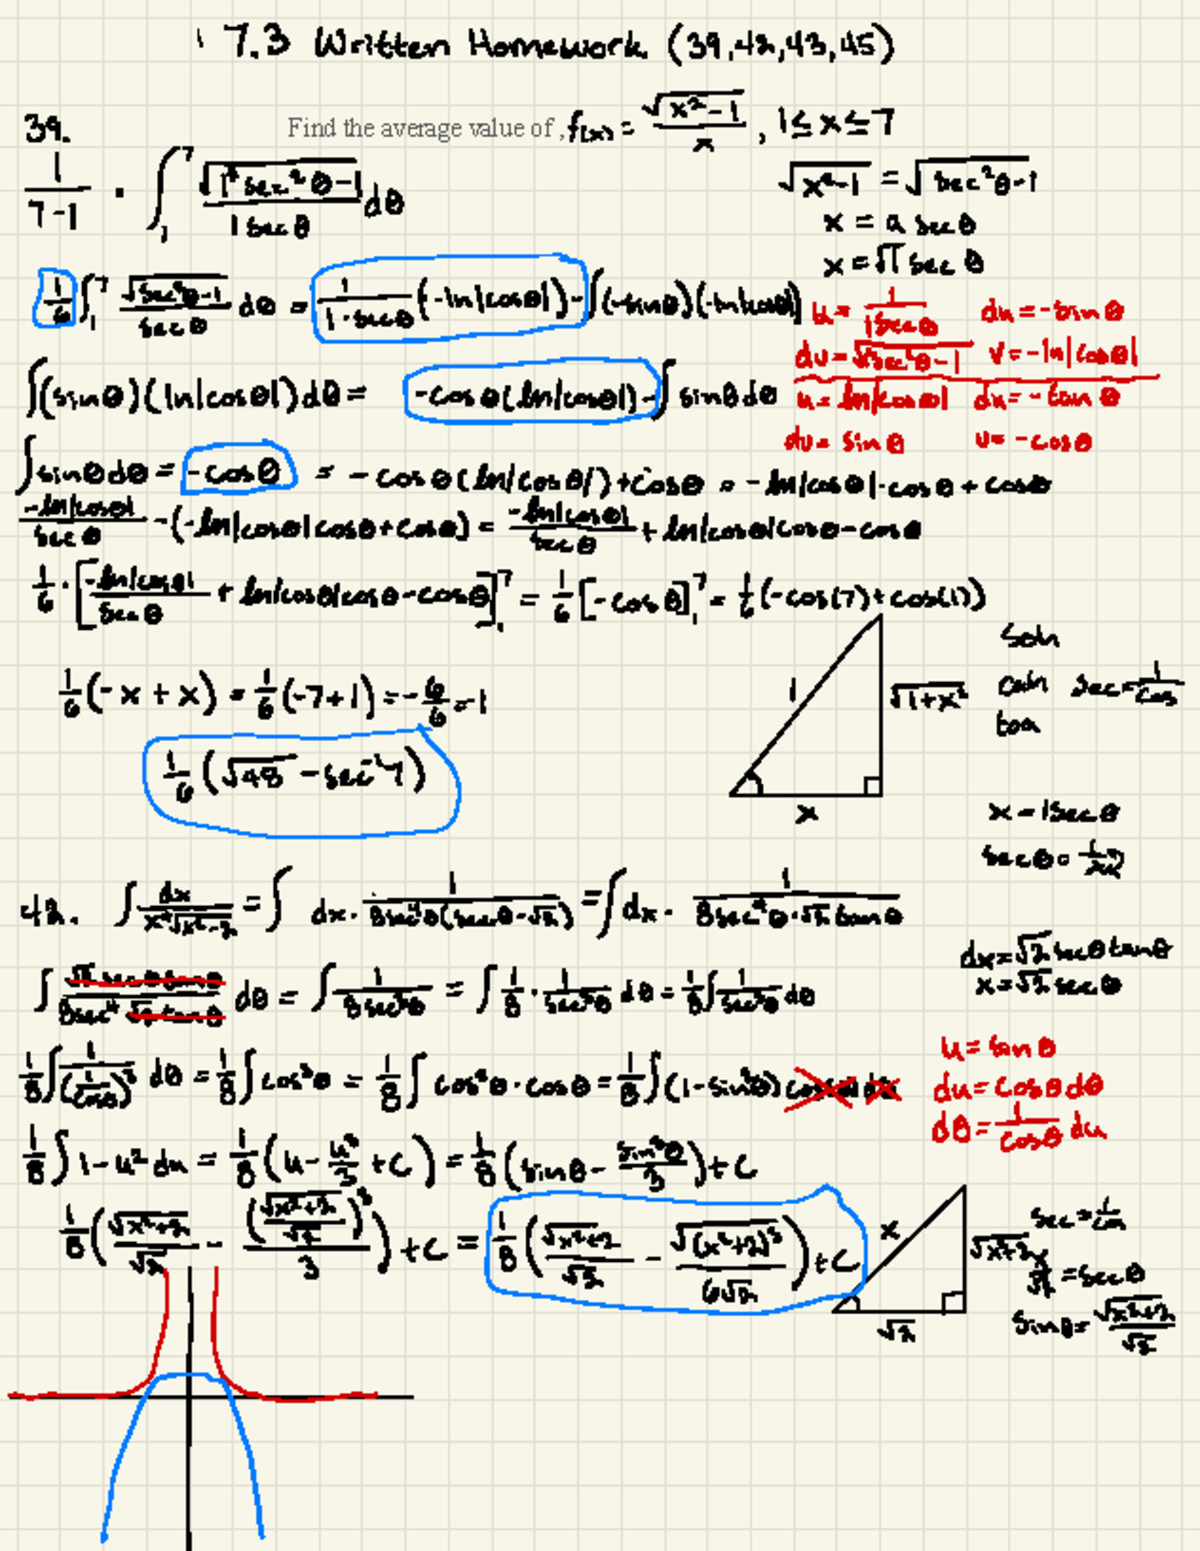 7.3 Written Homework (39,42,43,45)
39.
Find the average value of , f(x) = √(x²-1)/x , 1≤x≤7
1/(7-1) · ∫₁⁷ √(1²sec²θ-1)/(1secθ) dθ
√(x²-1) = √(sec²θ-1)
x = a secθ
x = √1 secθ
1/6 ∫₁⁷ √(sec²θ-1)/secθ dθ = 1/(1·secθ) (-ln|cosθ|) - ∫(-sinθ)(-ln|cosθ|)
u = 1/(1secθ) du = -sinθ
dv = √(sec²θ-1) v = -ln|cosθ|
∫(sinθ)(ln|cosθ|)dθ = -cosθ(ln|cosθ|) - ∫sinθdθ
u = ln|cosθ| du = -tanθ
dv = sinθ v = -cosθ
∫sinθdθ = -cosθ = -cosθ(ln|cosθ|)+cosθ = -ln|cosθ|·cosθ + cosθ
-ln|cosθ|/secθ - (-ln|cosθ|cosθ+cosθ) = -ln|cosθ|/secθ + ln|cosθ|cosθ-cosθ
1/6 · [-ln|cosθ|/secθ + ln|cosθ|cosθ-cosθ]₁⁷ = 1/6 [-cosθ]₁⁷ = 1/6 (-cos(7)+cos(1))
soh
cah sec = 1/cos
toa
1 √(1+x²)
x
1/6 (-x + x) = 1/6 (-7+1) = -6/6 = -1
1/6 (√48 - sec⁻¹7)
x = 1secθ
42. ∫ dx/(x⁴√(x²-2)) = ∫ dx · 1/(8sec⁴θ(secθ-√2)) = ∫ dx · 1/(8sec⁴θ·√2 tanθ)
dx = √2 secθtanθ
x = √2 secθ
∫ √2 secθtanθ/(8sec⁴ √2 tanθ) dθ = ∫ 1/(8sec³θ) = ∫ 1/8 · 1/sec³θ dθ = 1/8 ∫ 1/sec³θ dθ
1/8 ∫ 1/(1/cosθ)³ dθ = 1/8 ∫ cos³θ = 1/8 ∫ cos²θ·cosθ = 1/8 ∫(1-sin²θ)
u = sinθ
du = cosθdθ
dθ = 1/cosθ du
1/8 ∫ 1-u² du = 1/8 (u - u³/3 + C) = 1/8 (sinθ - sin³θ/3) + C
1/8 (√(x²+2)/√2 - (√(x²+2)/√2)³/3) + C = 1/8 (√(x²+2)/√2 - √(x²+2)³/(6√2)) + C
x
√2
sec = 1/cos
x/√2 = secθ
sinθ = √(x²+2)/√2